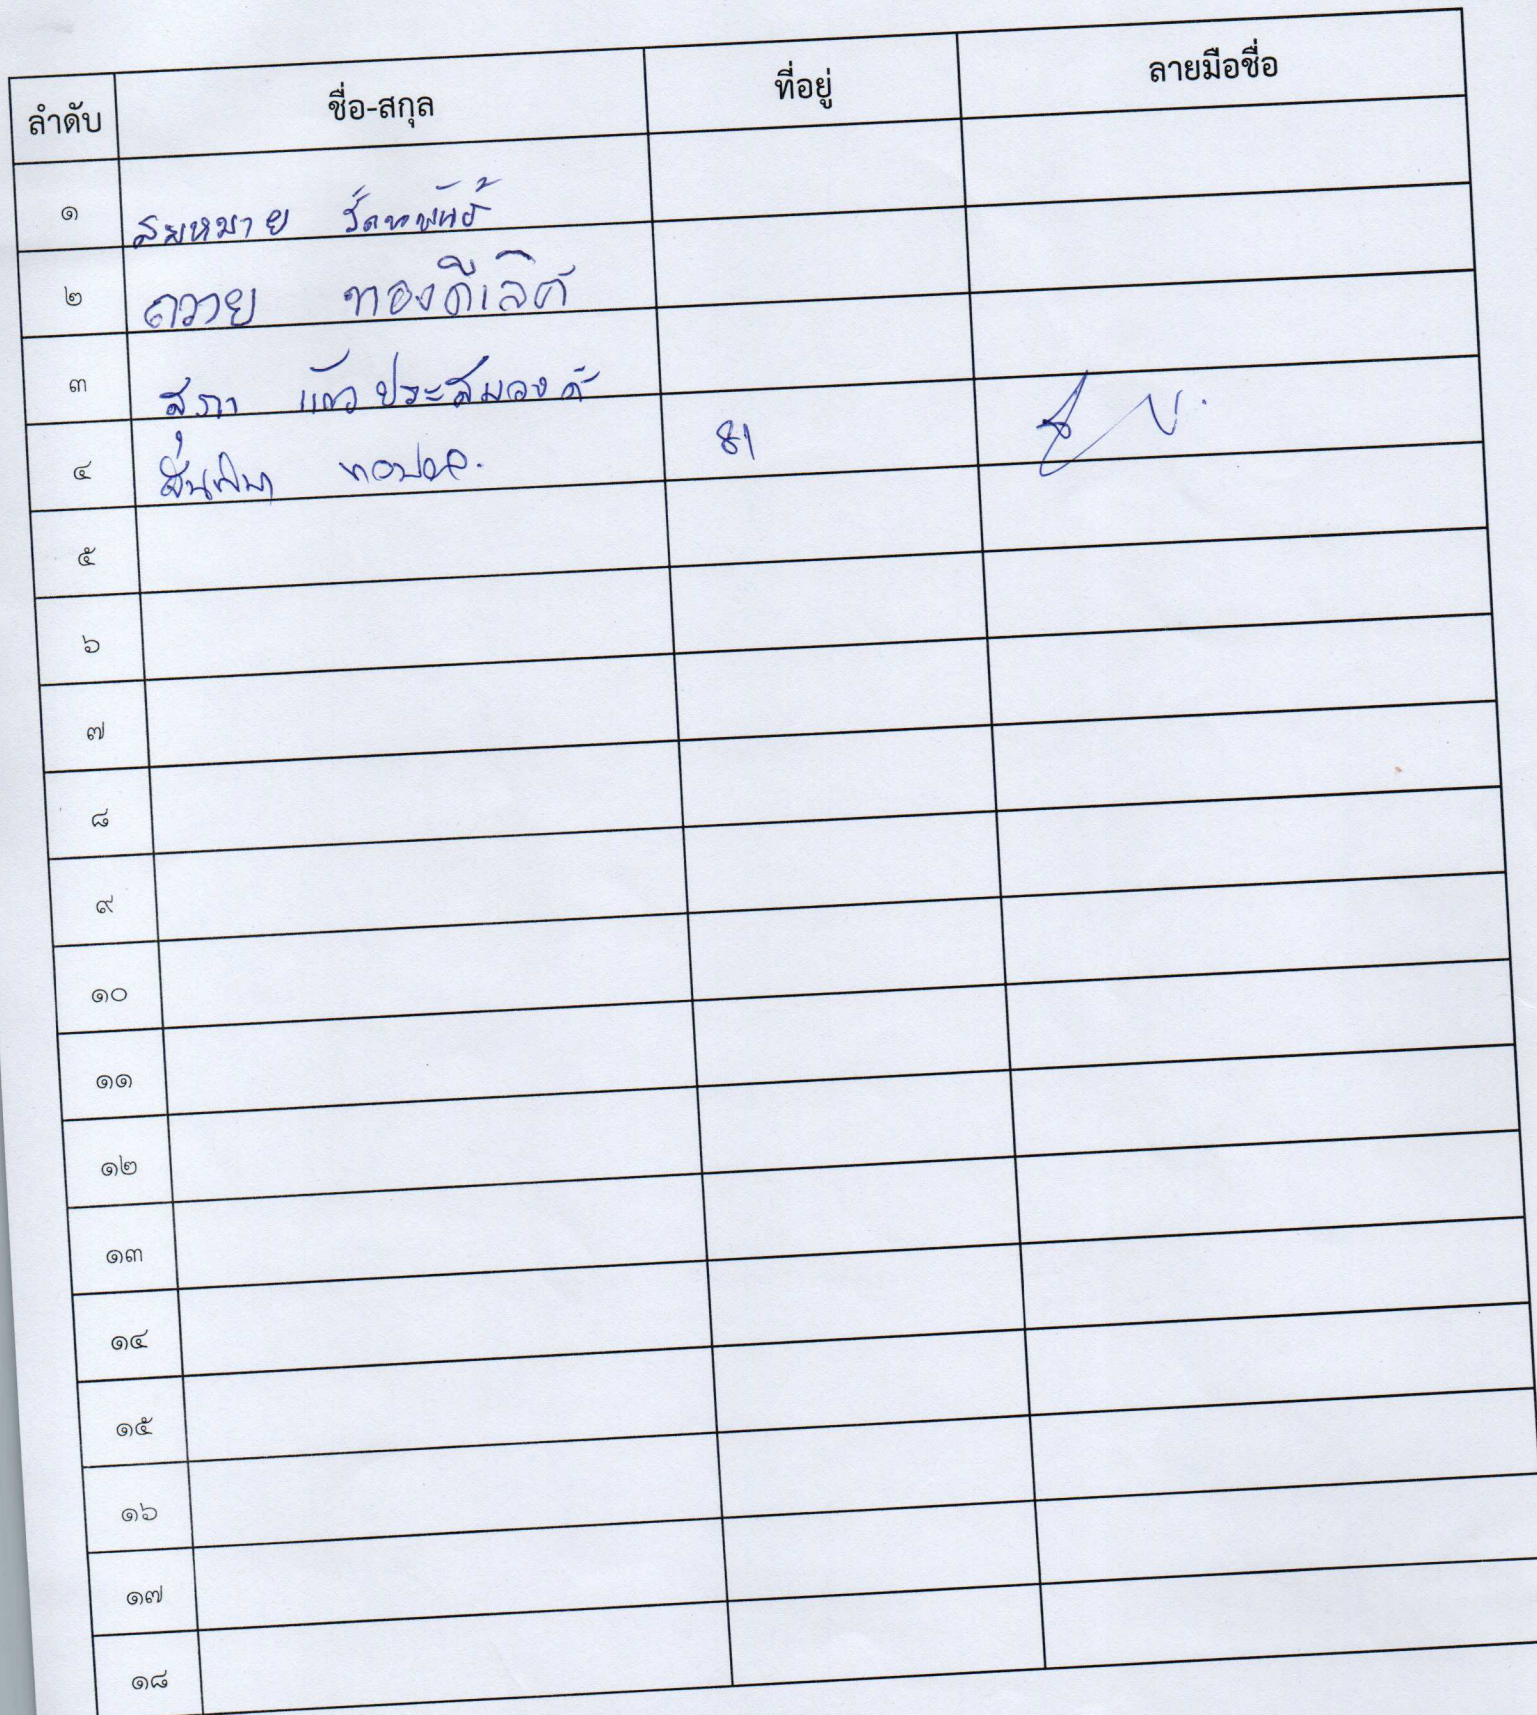 ลำดับ ชื่อ-สกุล ที่อยู่ ลายมือชื่อ
๑ สมหมาย
๒ ถวาย ทองดีเลิศ
๓ สุภา แก้วประสมองค์
๔ 81
๕
๖
๗
๘
๙
๑๐
๑๑
๑๒
๑๓
๑๔
๑๕
๑๖
๑๗
๑๘